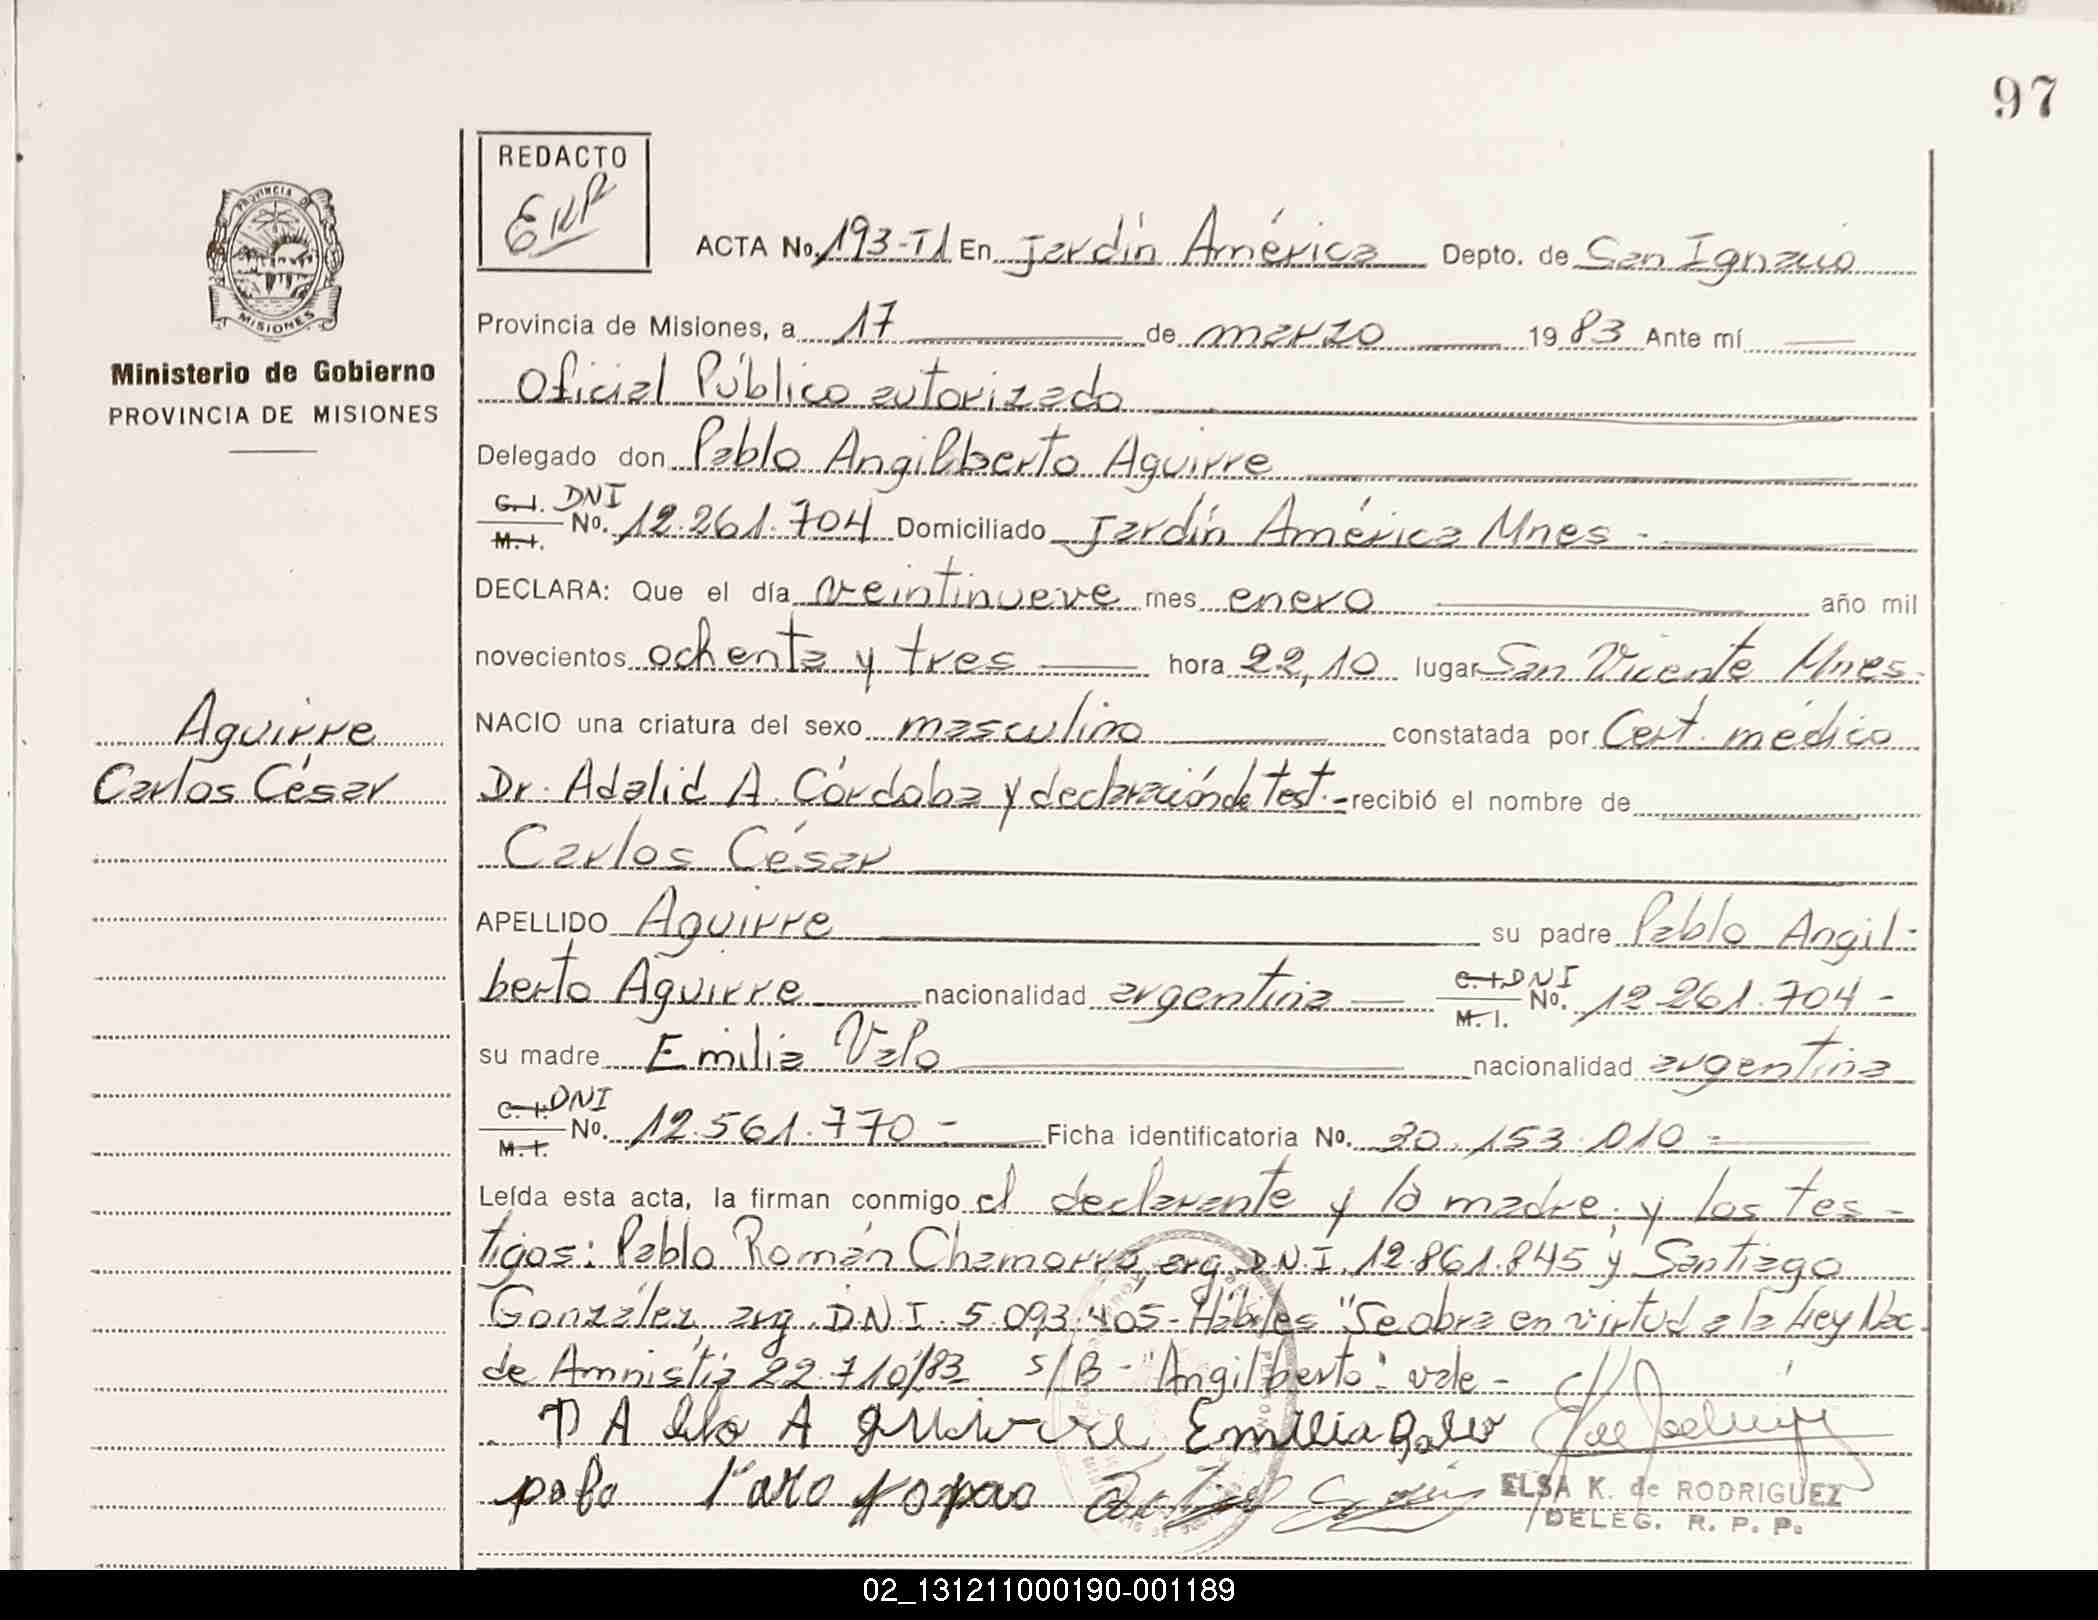 97
REDACTO
EKR
PROVINCIA DE
MISIONES
Ministerio de Gobierno
PROVINCIA DE MISIONES
ACTA No. 193-T1 En Jardín América Depto. de San Ignacio
Provincia de Misiones, a 17 de marzo 1983 Ante mí
Oficial Público autorizado
Delegado don Pablo Angilberto Aguirre
C.I. DNI
M.I. No. 12.261.704 Domiciliado Jardín América Mnes -
DECLARA: Que el día veintinueve mes enero año mil
novecientos ochenta y tres hora 22,10 lugar San Vicente Mnes-
Aguirre
Carlos César
NACIO una criatura del sexo masculino constatada por Cert. médico
Dr. Adalid A. Córdoba y declaración de test.- recibió el nombre de
Carlos César
APELLIDO Aguirre su padre Pablo Angil-
berto Aguirre nacionalidad argentina C.I. DNI M.I. No. 12.261.704-
su madre Emilia Valo nacionalidad argentina
C.I. DNI
M.I. No. 12.561.770 - Ficha identificatoria No. 30.153.010 -
Leída esta acta, la firman conmigo el declarante y la madre, y los tes-
tigos: Pablo Román Chamorro, arg. D.N.I. 12.861.845 y Santiago
González, arg. D.N.I. 5.093.405- Hábiles "Se obra en virtud a la Ley Nac.
de Amnistía 22.710/83 s/B - "Angilberto": vale -
PAblo Aguirre Emilia
ELSA K. de RODRIGUEZ
DELEG. R. P. P.
02_131211000190-001189